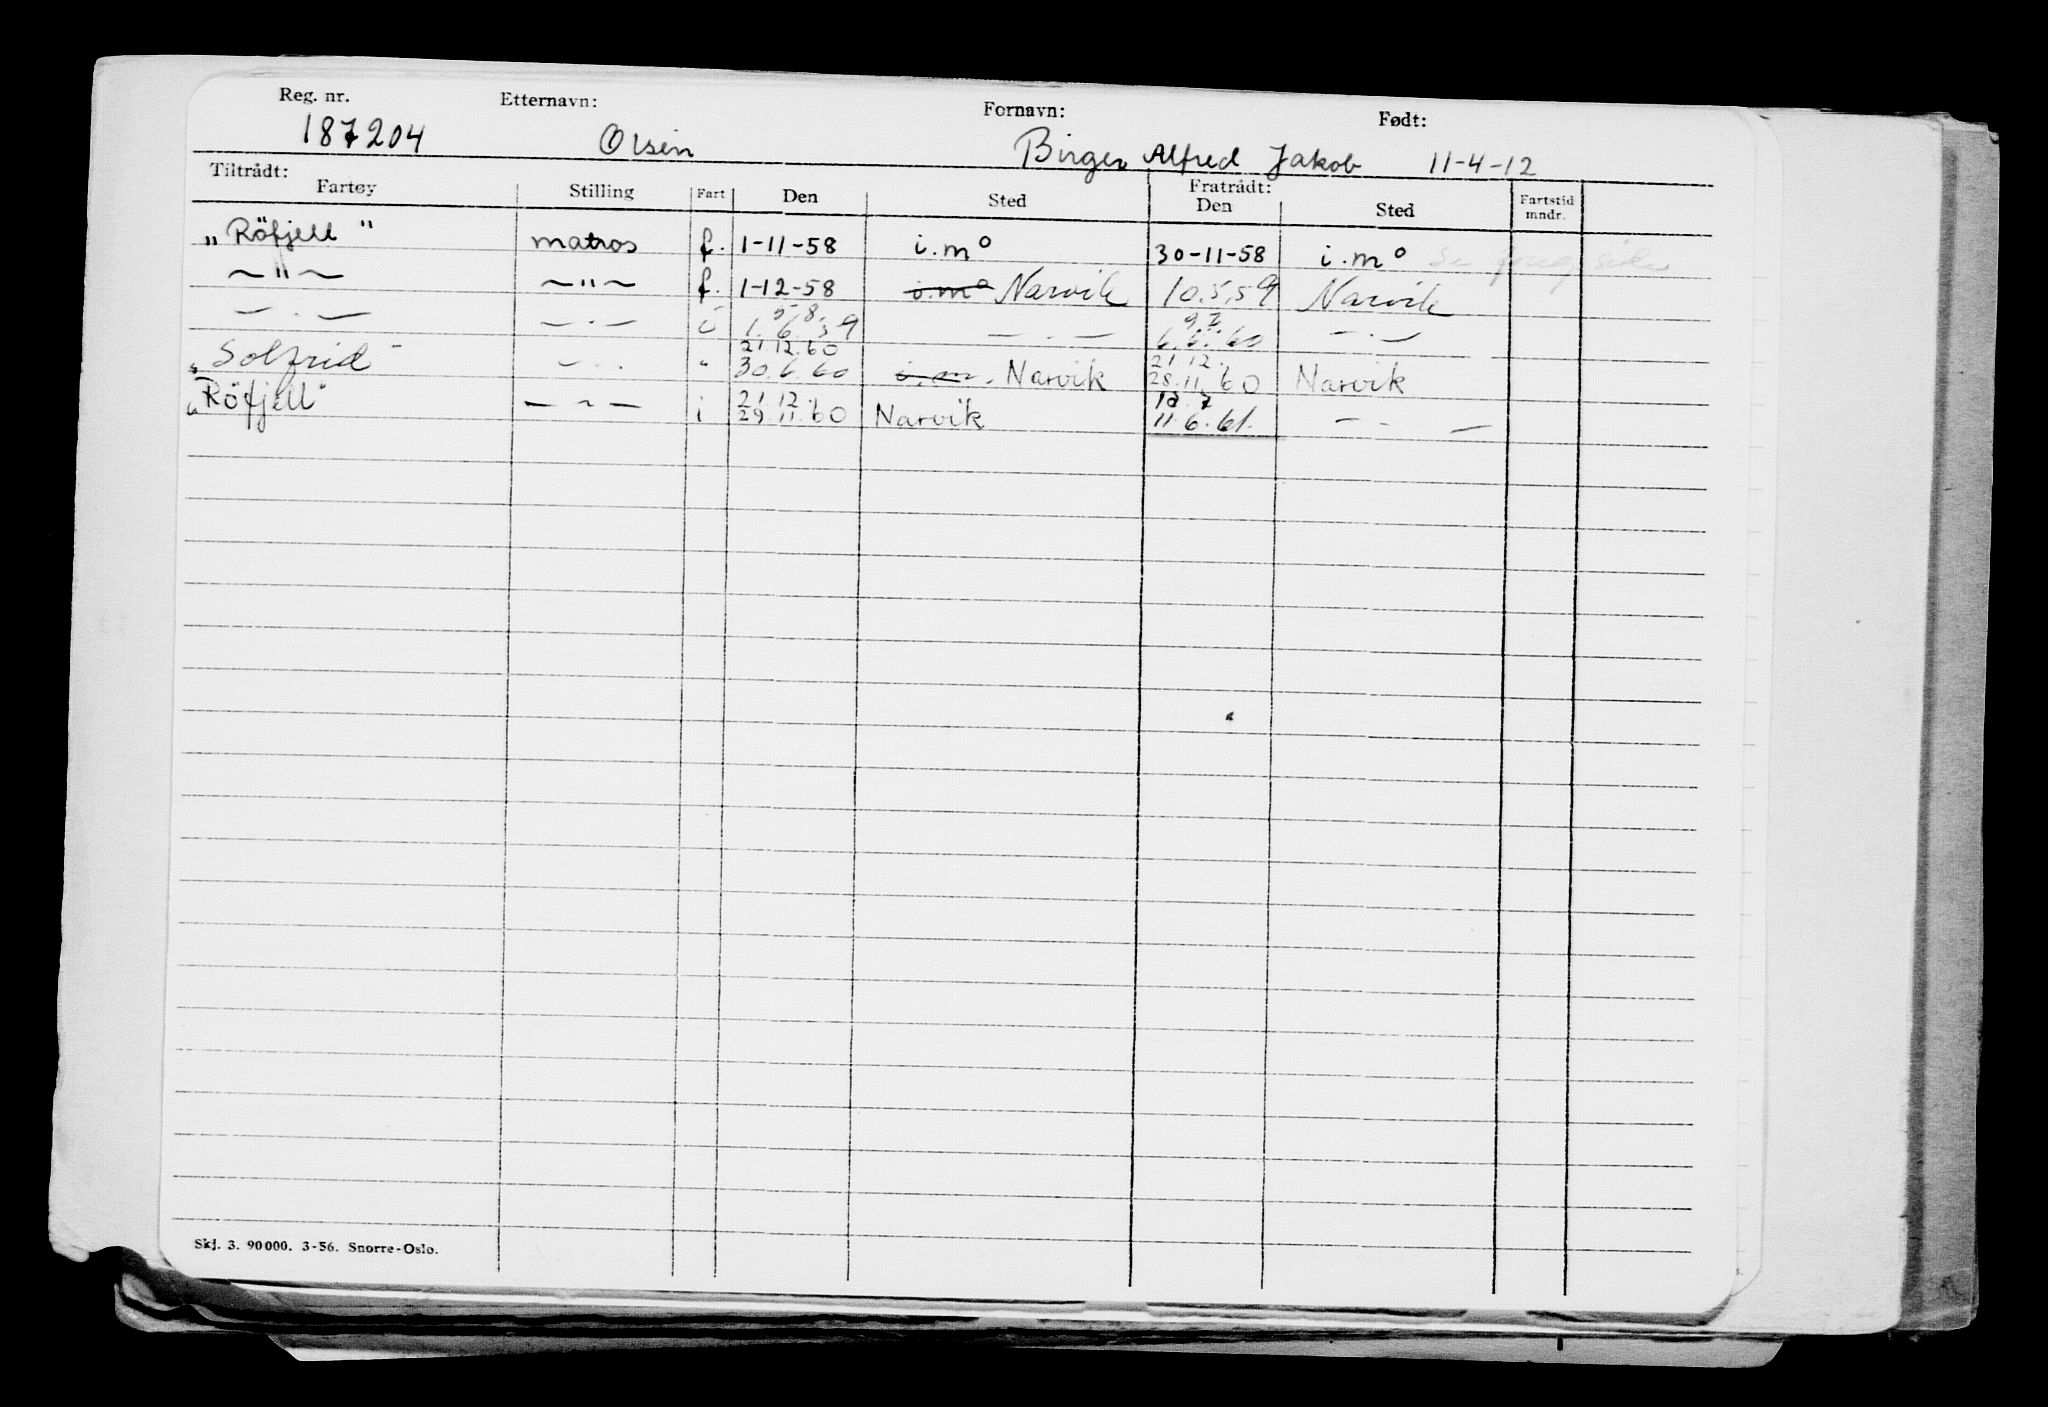 Reg. nr. Etternavn: Fornavn: Født:
187204 Olsen Birger Alfred Jakob 11-4-12
Tiltrådt: Fratrådt:
Fartøy Stilling Fart Den Sted Den Sted Fartstid mndr.
„Röfjell" matros f. 1-11-58 i.mº 30-11-58 i.mº Se
~"~ ~"~ f. 1-12-58 i.mº Narvik 10.5.59 Narvik
5 8. 9 7.
— . — — . — i 1. 6. 59 — . — 6. 6. 60 — . —
21.12.60 21.12.
„Solfrid" — . . " 30.6.60 i.m. Narvik 28.11.60 Narvik
21.12. 18. 7
„Röfjell" — " — i 29.11.60 Narvik 11.6.61. — . —
Skj. 3. 90000. 3-56. Snorre-Oslo.